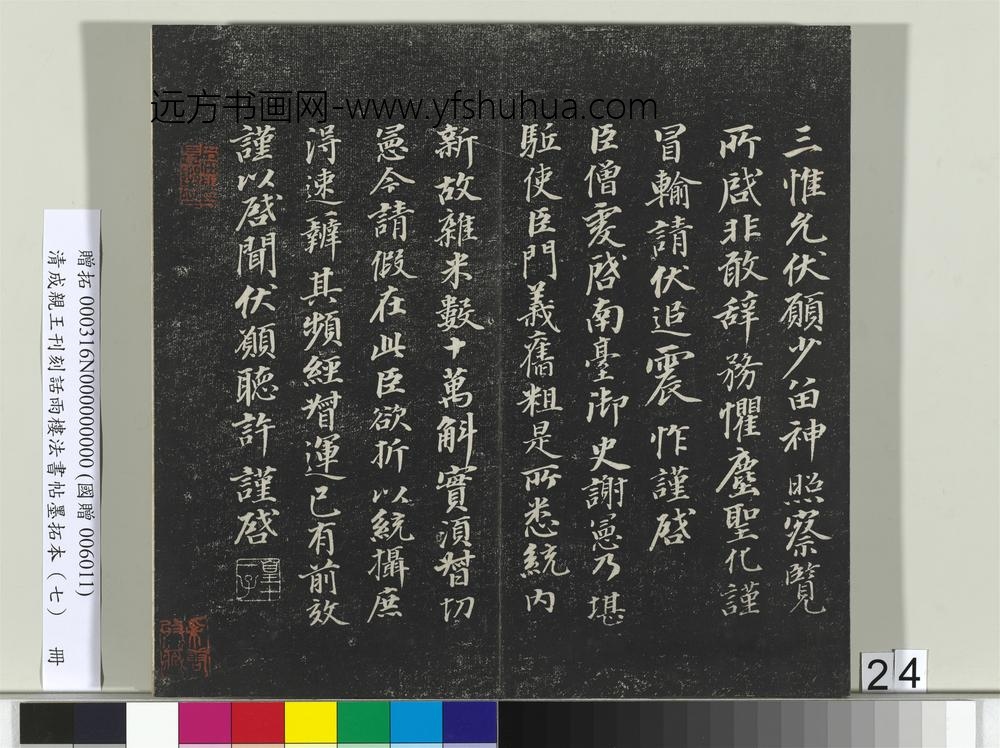 远方书画网-www.yfshuhua.com
三惟允伏願少留神照察覽
所啓非敢辞務懼塵聖化謹
冒輸請伏追震怍謹啓
臣僧虔啓南臺御史謝憲乃堪
駈使臣門義舊粗是所悉統内
新故雜米數十萬斛實須督切
憲今請假在此臣欲折以統攝庶
得速辦其頻經督運已有前效
謹以啓聞伏願聽許謹啓
皇十一子
贈拓 000316N000000000 (國贈 006011)
清成親王刊刻詒晉齋法書帖墨拓本（七） 冊
24